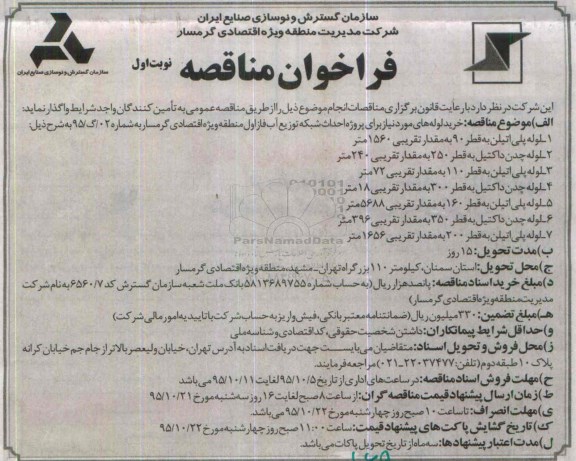 سازمان گسترش و نوسازی صنایع ایران
شرکت مدیریت منطقه ویژه اقتصادی گرمسار
سازمان گسترش و نوسازی صنایع ایران
فراخوان مناقصه
نوبت اول
این شرکت در نظر دارد با رعایت قانون برگزاری مناقصات انجام موضوع ذیل را از طریق مناقصه عمومی به تأمین کنندگان واجد شرایط واگذار نماید:
الف) موضوع مناقصه: خرید لوله های مورد نیاز برای پروژه احداث شبکه توزیع آب فاز اول منطقه ویژه اقتصادی گرمسار به شماره ۰۲/گ/۹۵ به شرح ذیل:
۱-لوله پلی اتیلن به قطر ۹۰ به مقدار تقریبی ۱۵۶۰ متر
۲-لوله چدن داکتیل به قطر ۲۵۰ به مقدار تقریبی ۲۴۰ متر
۳-لوله پلی اتیلن به قطر ۱۱۰ به مقدار تقریبی ۷۲ متر
۴-لوله چدن داکتیل به قطر ۳۰۰ به مقدار تقریبی ۱۸ متر
۵-لوله پلی اتیلن به قطر ۱۶۰ به مقدار تقریبی ۵۶۸۸ متر
۶-لوله چدن داکتیل به قطر ۳۵۰ به مقدار تقریبی ۳۹۶ متر
۷-لوله پلی اتیلن به قطر ۲۰۰ به مقدار تقریبی ۱۶۵۶ متر
ParsNamadData
ب) مدت تحویل: ۱۵ روز
ج) محل تحویل: استان سمنان، کیلومتر ۱۱۰ بزرگراه تهران-مشهد، منطقه ویژه اقتصادی گرمسار
د) مبلغ خرید اسناد مناقصه: پانصد هزار ریال (به حساب شماره ۵۸۱۳۶۸۹۷۵۵ بانک ملت شعبه سازمان گسترش کد ۶۵۶۰/۷ به نام شرکت
مدیریت منطقه ویژه اقتصادی گرمسار)
هـ) مبلغ تضمین: ۳۳۰ میلیون ریال (ضمانتنامه معتبر بانکی، فیش واریز به حساب شرکت با تاییدیه امور مالی شرکت)
و) حداقل شرایط پیمانکاران: داشتن شخصیت حقوقی، کد اقتصادی و شناسه ملی
ز) محل فروش و تحویل اسناد: متقاضیان می بایست جهت دریافت اسناد به آدرس تهران، خیابان ولیعصر بالاتر از جام جم خیابان کرانه
پلاک ۱۰ طبقه دوم (تلفن: ۲۲۰۳۷۴۷۷-۰۲۱) مراجعه فرمایند.
ح) مهلت فروش اسناد مناقصه: در ساعت های اداری از تاریخ ۹۵/۱۰/۵ لغایت ۹۵/۱۰/۱۱ می باشد
ط) زمان ارسال پیشنهاد قیمت مناقصه گران: از ساعت ۸ صبح لغایت ۱۶ روز سه شنبه مورخ ۹۵/۱۰/۲۱
ی) مهلت انصراف: تا ساعت ۱۰ صبح روز چهارشنبه مورخ ۹۵/۱۰/۲۲ می باشد
ک) تاریخ گشایش پاکت های پیشنهاد قیمت: ساعت ۱۱:۰۰ صبح روز چهارشنبه مورخ ۹۵/۱۰/۲۲
ل) مدت اعتبار پیشنهادها: سه ماه از تاریخ تحویل پاکات می باشد.